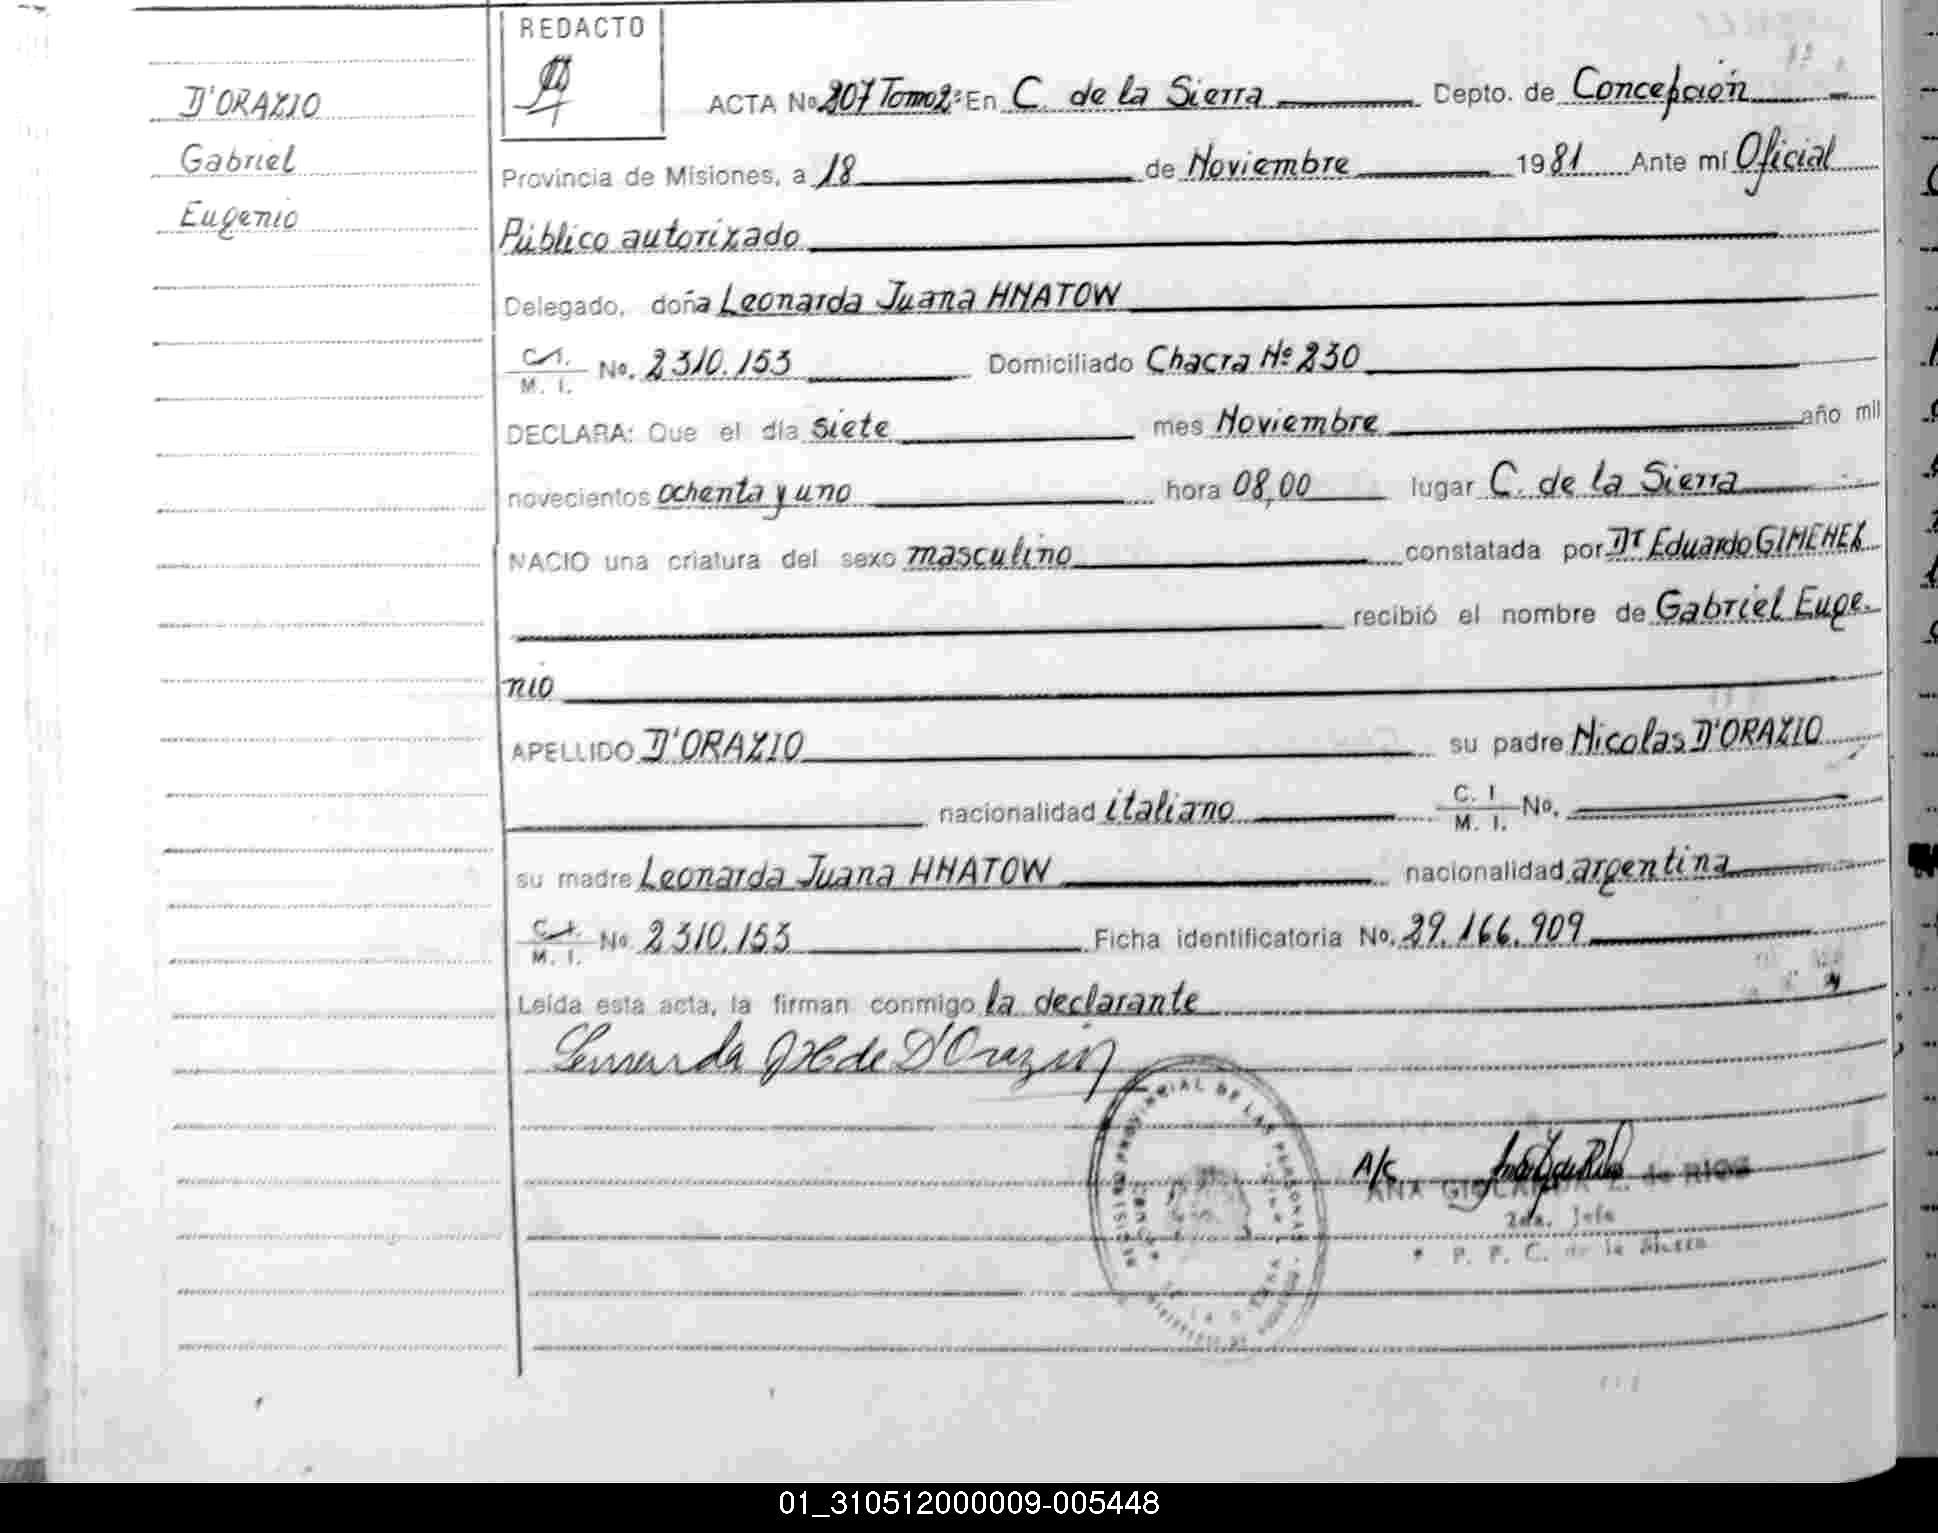 REDACTO
D'ORAZIO
Gabriel
Eugenio
ACTA No 207 Tomo 2º En C. de la Sierra Depto. de Concepción
Provincia de Misiones, a 18 de Noviembre 1981 Ante mí Oficial
Público autorizado
Delegado, doña Leonarda Juana HNATOW
C. I.
M. I. No. 2310.153 Domiciliado Chacra Nº 230
DECLARA: Que el día siete mes Noviembre año mil
novecientos ochenta y uno hora 08,00 lugar C. de la Sierra
NACIO una criatura del sexo masculino constatada por Dr Eduardo GIMENEZ
recibió el nombre de Gabriel Euge.
nio
APELLIDO D'ORAZIO su padre Nicolas D'ORAZIO
nacionalidad italiano C. I. M. I. No.
su madre Leonarda Juana HNATOW nacionalidad argentina
C. I.
M. I. No 2310.153 Ficha identificatoria No. 29.166.909
Leída esta acta, la firman conmigo la declarante
Leonarda J H de D'Orazio
REGISTRO PROVINCIAL DE LAS PERSONAS
A/c
ANA de RIOS
2da. Jefe
P. P. C. de la Sierra
01_310512000009-005448